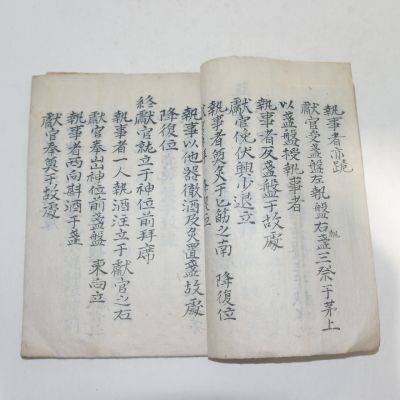 執事者亦跪
獻官受盞盤左執盤右執盞三祭于茅上
以盞盤授執事者
執事者反盞盤于故處
獻官俛伏興少退立
執事者奠炙于匕筯之南 降復位
執事以他器徹酒及炙置盞故處
降復位
終獻官就立于神位前拜席
執事者一人執酒注立于獻官之右
獻官奉出神位前盞盤 東向立
執事者西向斟酒于盞
獻官奉奠于故處